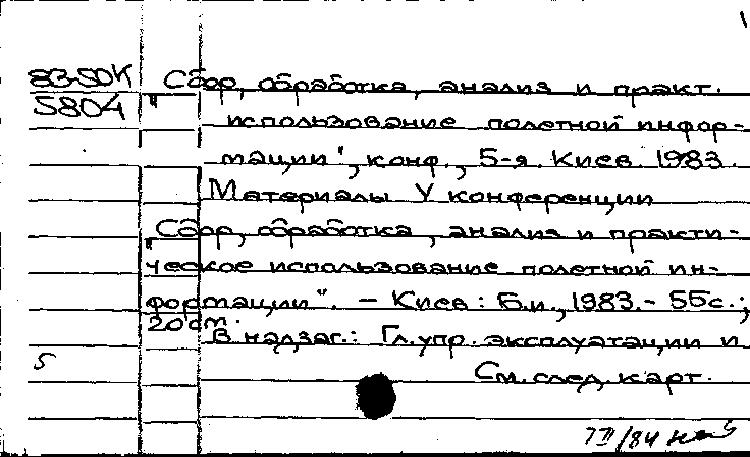 1
83-50К "Сбор, обработка, анализ и практ.
5804
использование полетной инфор-
мации", конф., 5-я. Киев. 1983.
Материалы V конференции
"Сбор, обработка, анализ и практи-
ческое использование полетной ин-
формации". – Киев: Б.и., 1983.- 55с.;
20 см.
В надзаг.: Гл. упр. эксплуатации и
5
См. след. карт.
/84